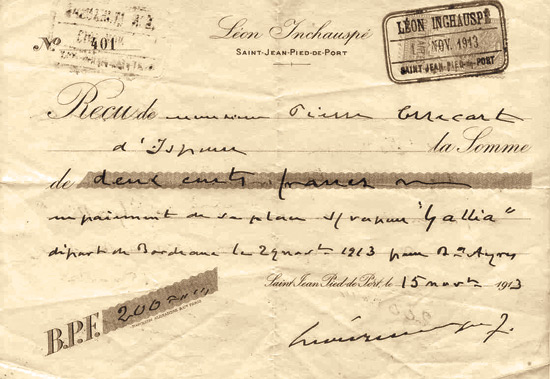 Nº 401
Léon Inchauspé
SAINT-JEAN-PIED-DE-PORT
LÉON INCHAUSPÉ
15 NOV. 1913
SAINT-JEAN-PIED-DE-PORT
Reçu de monsieur Pierre Errecart
d'Ispoure la Somme
de deux cents francs
en paiement de sa place s/vapeur "Gallia"
départ de Bordeaux le 29 novbre 1913 pour Bos Ayres
Saint Jean Pied de Port, le 15 novbre 1913
B.P.F. 200